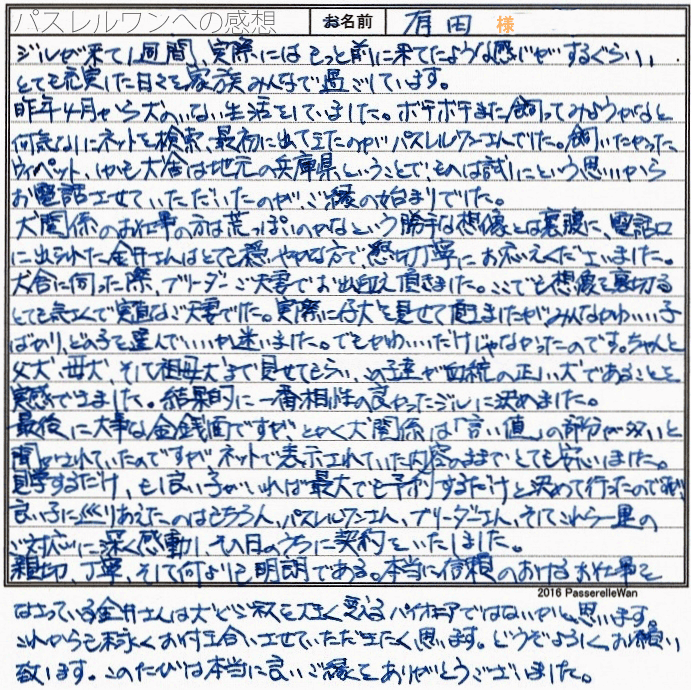 パスレルワンへの感想 お名前 有田 様
ジルが来て1週間、実際にはもっと前に来てたような感じがするぐらい、
とても充実した日々を家族みんなで過ごしています。
昨年4月から犬のいない生活をしていました。ボチボチまた飼ってみようかなと
何気なしにネットを検索、最初に出てきたのがパスレルワンさんでした。飼いたかった
ウィペット、しかも犬舎は地元の兵庫県ということで、ものは試しにという思いから
お電話させていただいたのが、ご縁の始まりでした。
犬関係のお仕事の方は荒っぽいのかなという勝手な想像とは裏腹に、電話口
に出られた金井さんはとても穏やかな方で、懇切丁寧にお応えくださいました。
犬舎に伺った際、ブリーダーご夫妻でお出迎え頂きました。ここでも想像を裏切る
とても気さくで実直なご夫妻でした。実際に仔犬を見せて頂きましたがみんなかわいい子
ばかり、どの子を選んでいいか迷いました。でもかわいいだけじゃなかったのです。ちゃんと
父犬、母犬、そして祖母犬まで見せてもらい、この子達が血統の正しい犬であることを
実感できました。結果的に一番相性の良かったジルに決めました。
最後に大事な金銭面ですが、とかく犬関係は「言い値」の部分が多いと
聞かされていたのですがネットで表示されていた内容のままでとても安心しました。
見学するだけ、もし良い子がいれば最大でも予約するだけと決めて行ったのですが、
良い子に巡りあえたのはもちろん、パスレルワンさん、ブリーダーさん、そしてこれら一連の
ご対応に深く感動し、その日のうちに契約をいたしました。
親切、丁寧、そして何よりも明朗である。本当に信頼のおけるお仕事を
2016 PasserelleWan
なさっている金井さんは犬ビジネスを大きく変えるパイオニアではないかと思います。
これからも末永くお付き合いさせていただきたく思います。どうぞよろしくお願い
致します。このたびは本当に良いご縁をありがとうございました。